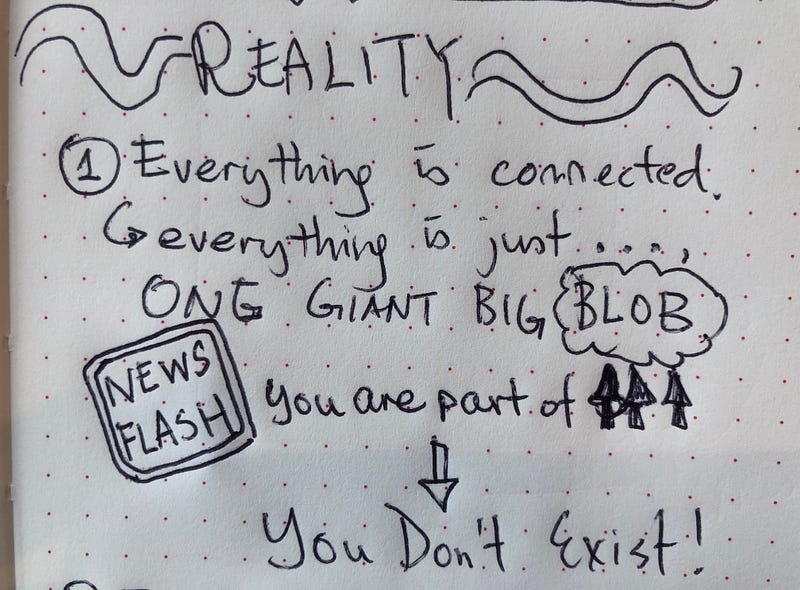 REALITY
① Everything is connected.
↳ everything is just . . . . ,
ONE GIANT BIG BLOB
NEWS FLASH you are part of ↑↑↑
↓
You Don't Exist!